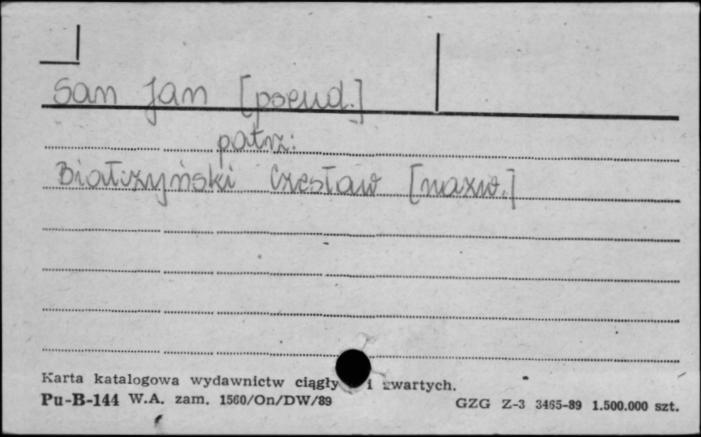 San Jan [pseud.]
patrz:
Białczyński Czesław [nazw.]
Karta katalogowa wydawnictw ciągły i zwartych.
Pu-B-144 W.A. zam. 1560/On/DW/89 GZG Z-3 3465-89 1.500.000 szt.